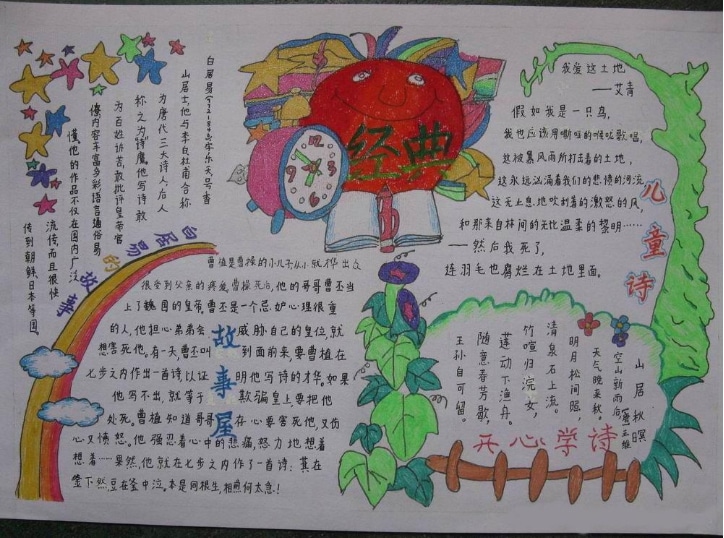 白居易(772-846)字乐天号香
山居士,他与李白杜甫合称
为唐代三大诗人后人
称之为诗魔他写诗敢
为百姓诉苦敢批评皇帝官
僚内容丰富多彩语言通俗易
懂他的作品不仅在国内广泛
流传,而且很快
传到朝鲜日本等国。
白居易的故事
经典
12
3
6
9
我爱这土地
——艾青
假如我是一只鸟,
我也应该用嘶哑的喉咙歌唱,
这被暴风雨所打击着的土地,
这永远汹涌着我们的悲愤的河流
这无止息地吹刮着的激怒的风,
和那来自林间的无比温柔的黎明……
——然后我死了,
连羽毛也腐烂在土地里面。
儿童诗
曹植是曹操的小儿子从小就才华出众
很受到父亲的疼爱曹操死后,他的哥哥曹丕当
上了魏国的皇帝,曹丕是一个忌妒心理很重
的人,他担心弟弟会威胁自己的皇位,就
想害死他。有一天,曹丕叫到面前来,要曹植在
七步之内作出一首诗,以证明他写诗的才华,如果
他写不出,就等于欺骗皇上,要把他
处死。曹植知道哥哥存心要害死他,又伤
心又愤怒。他强忍着心中的悲痛,努力地想着
想着……果然,他就在七步之内作了一首诗:萁在
釜下燃,豆在釜中泣。本是同根生,相煎何太急!
故事屋
山居秋暝
唐王维
空山新雨后,
天气晚来秋。
明月松间照,
清泉石上流。
竹喧归浣女,
莲动下渔舟。
随意春芳歇,
王孙自可留。
开心学诗